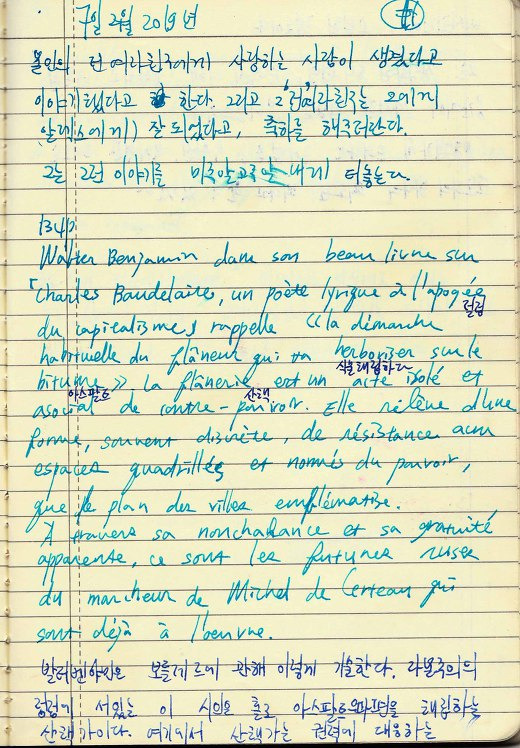 7일 2월 2019년
본인의 전 여자친구에게 사랑하는 사람이 생겼다고
이야기 했다고 한다. 그리고 그 여자친구는 그에게
잘 되었다고, 축하를 해주더란다.
그는 그런 이야기를 내게 터놓는다.
Walter Benjamin dans son beau livre sur
「Charles Baudelaire, un poète lyrique à l'apogée
령점
du capitalisme」 rappelle «la démarche
habituelle du flâneur qui va herboriser sur le
식물채집하다
bitume» la flânerie est un acte isolé et
아스팔트 산책
asocial de contre-pouvoir. Elle relève d'une
forme, souvent discrète, de résistance aux
espaces quadrillés et normés du pouvoir,
que le plan des villes emblématise.
À travers sa nonchalance et sa gratuité
apparente, ce sont les futures ruses
du marcheur de Michel de Certeau qui
sont déjà à l'oeuvre.
발터 벤야민은 보들레르에 관해 이렇게 기술한다. 자본주의의
령점에 서있는 이 시인은 홀로 아스팔트 파편을 채집하는
산책가이다. 여기에서 산책가는 권력에 대응하는